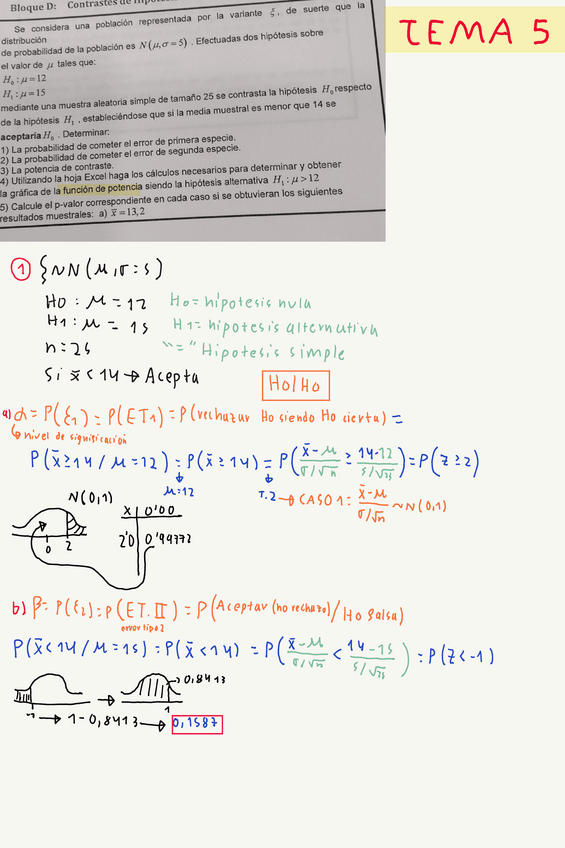 Bloque D: Contrastes de
TEMA 5
Se considera una población representada por la variante ξ, de suerte que la
distribución
de probabilidad de la población es N(μ,σ=5). Efectuadas dos hipótesis sobre
el valor de μ tales que:
H₀ : μ=12
H₁ : μ=15
mediante una muestra aleatoria simple de tamaño 25 se contrasta la hipótesis H₀ respecto
de la hipótesis H₁, estableciéndose que si la media muestral es menor que 14 se
aceptaría H₀. Determinar:
1) La probabilidad de cometer el error de primera especie.
2) La probabilidad de cometer el error de segunda especie.
3) La potencia de contraste.
4) Utilizando la hoja Excel haga los cálculos necesarios para determinar y obtener
la gráfica de la función de potencia siendo la hipótesis alternativa H₁ : μ>12
5) Calcule el p-valor correspondiente en cada caso si se obtuvieran los siguientes
resultados muestrales: a) x̄=13,2
① ξ~N(μ,σ=5)
H0 : μ=12 H0= hipotesis nula
H1 : μ= 15 H1= hipotesis alternativa
n=25 "=" Hipotesis simple
Si x̄<14→Acepta H0/H0
a) α= P(ξ1)= P(ET1)=P(rechazar Ho siendo Ho cierta) =
↳nivel de significación
P(x̄≥14/μ=12)=P(x̄≥14)=P(x̄-μ/σ/√n ≥ 14-12/5/√25)=P(z≥2)
μ=12 T.2→CASO 1: x̄-μ/σ/√n ~N(0,1)
N(0,1) x 0'00
0 2 2'0 0'99772
b) β= P(ξ2)=P(ET.II)=P(Aceptar(no rechazo)/Ho falsa)
error tipo 2
P(x̄<14/μ=15)=P(x̄<14) =P(x̄-μ/σ/√n < 14-15/5/√25)=P(z<-1)
0,8413
-1 1
→ 1-0,8413→ 0,1587